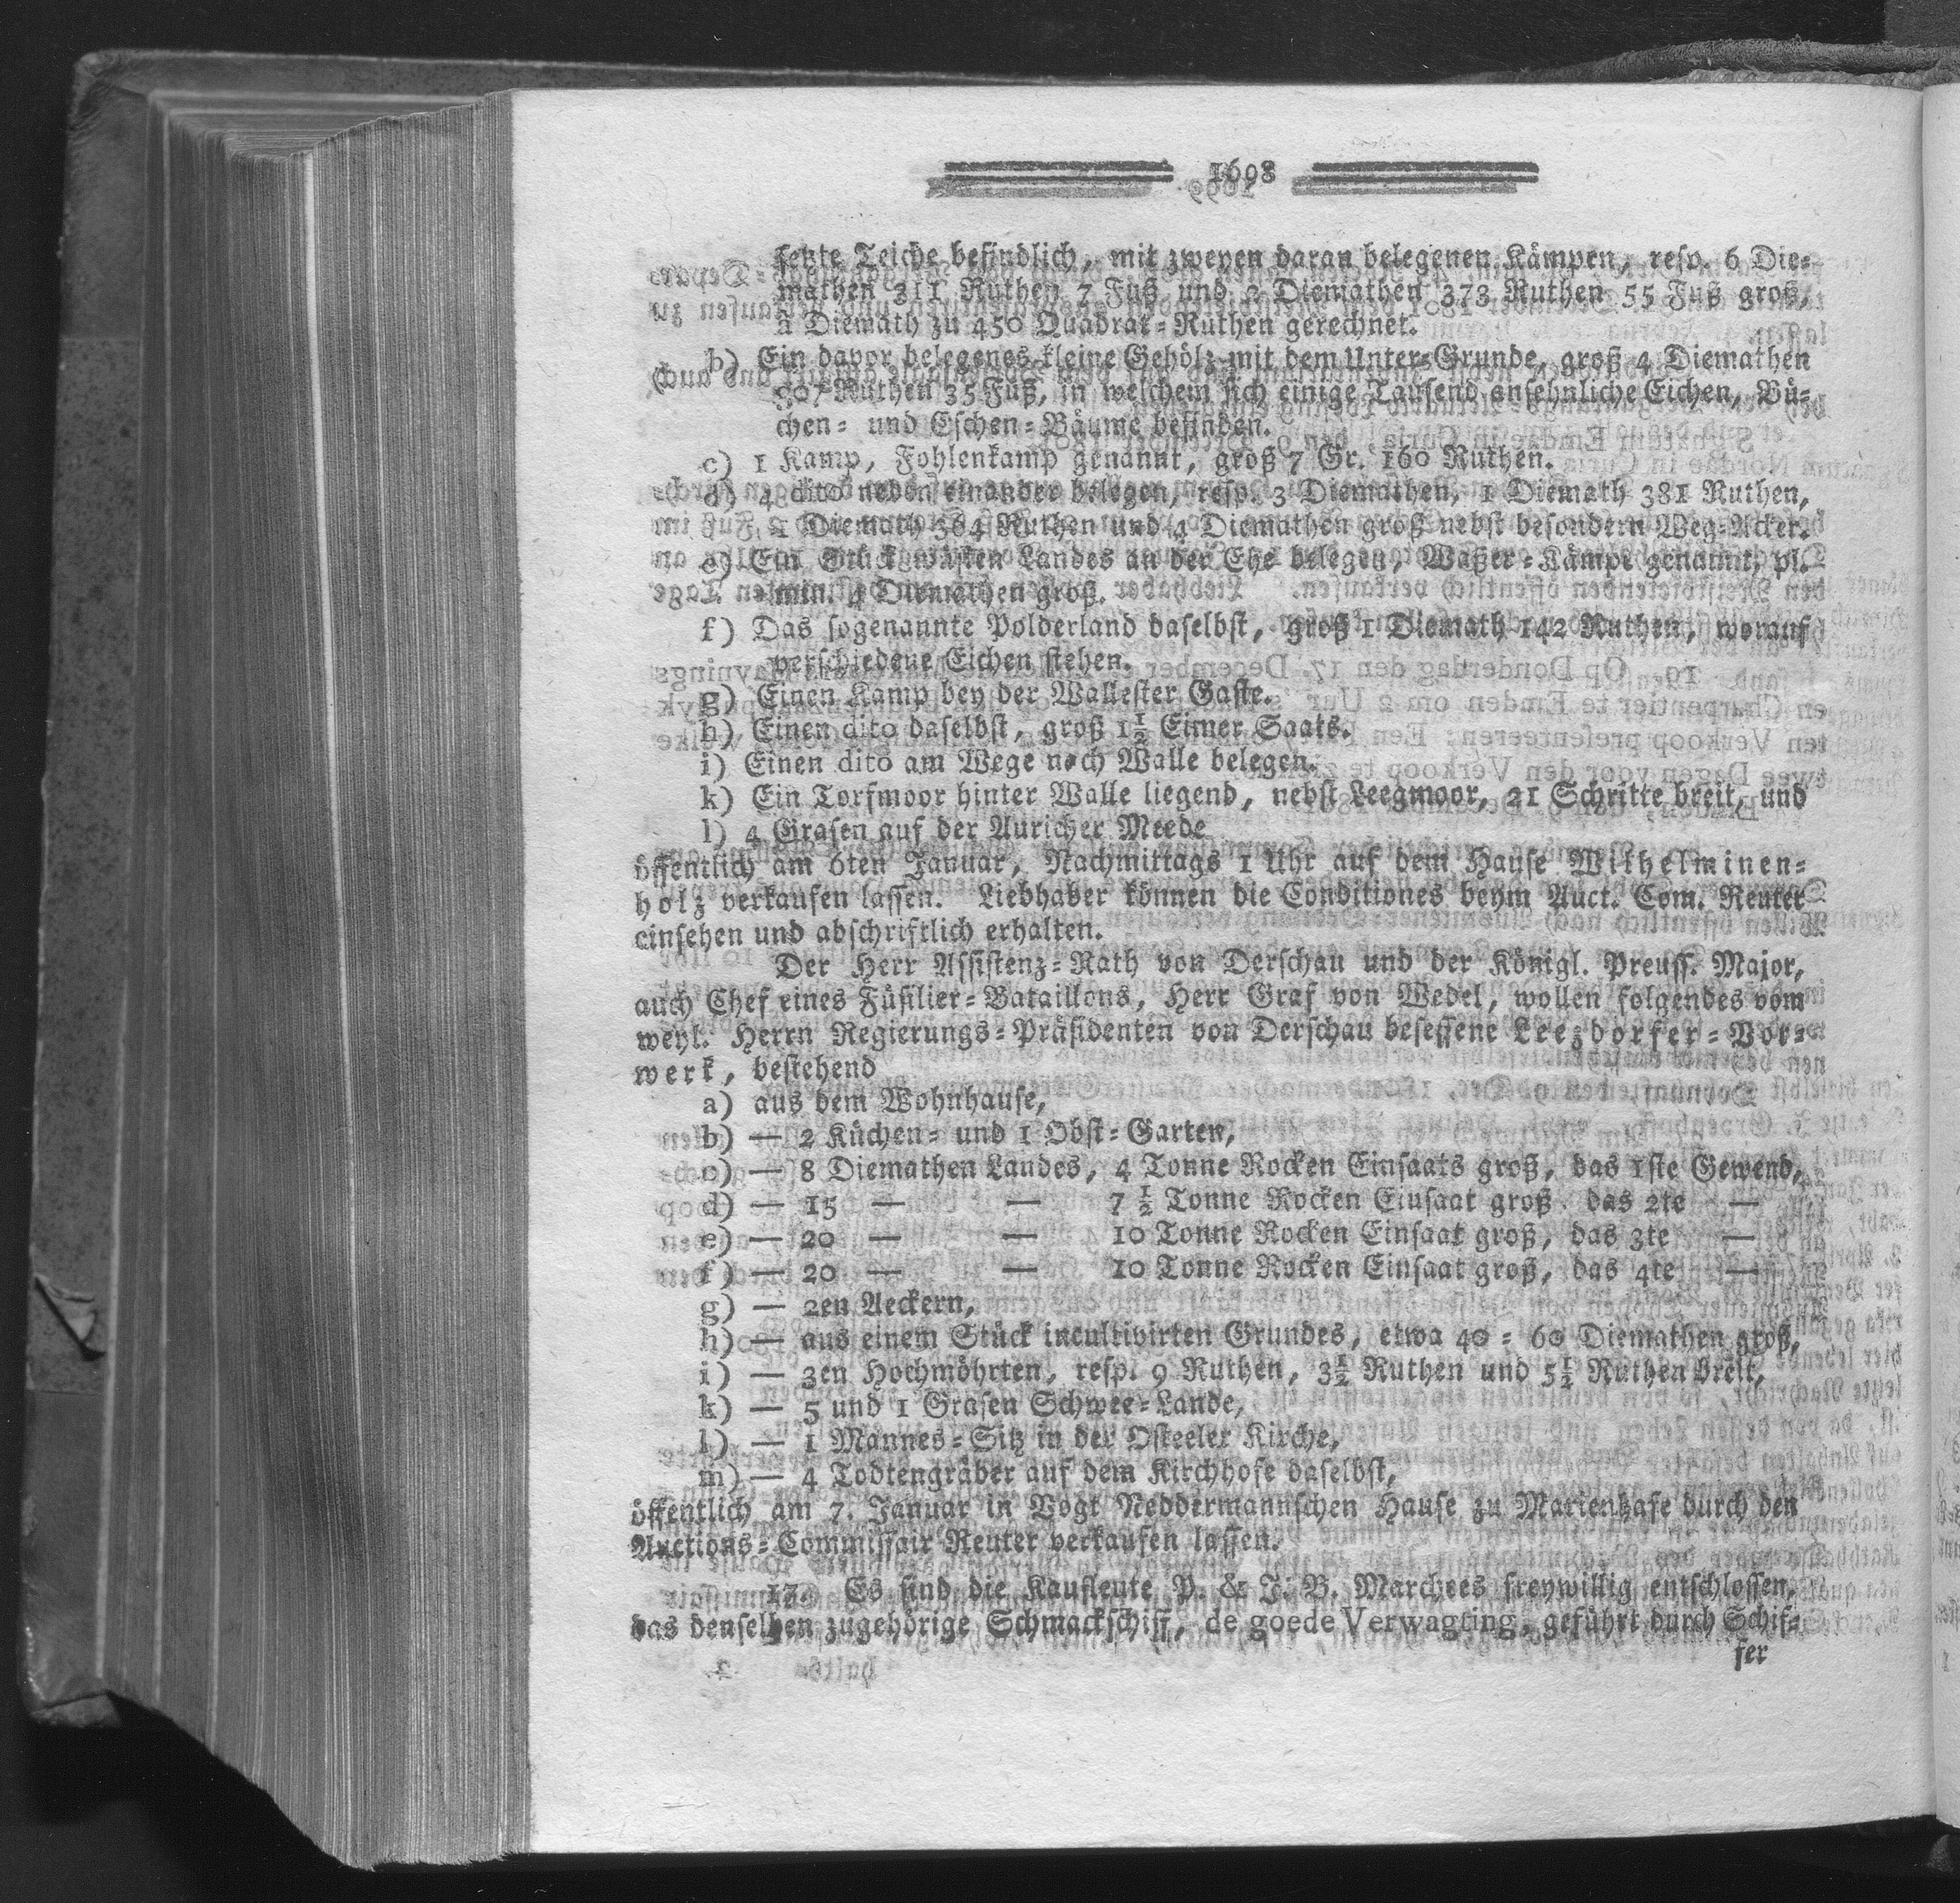 1608
setzte Teiche befindlich, mit zweyen daran belegenen Kämpen, resp. 6 Die-
mathen 311 Ruthen 7 Fuß und 2 Diemathen 373 Ruthen 55 Fuß groß,
à Diemath zu 450 Quadrat-Ruthen gerechnet.
b) Ein davor belegenes kleine Gehölz mit dem Unter-Grunde, groß 4 Diemathen
307 Ruthen 35 Fuß, in welchem sich einige Tausend ansehnliche Eichen, Bü-
chen- und Eschen-Bäume befinden.
c) 1 Kamp, Fohlenkamp genannt, groß 7 Gr. 160 Ruthen.
d) 4 dito neben einander belegen, resp. 3 Diemathen, 1 Diemath 381 Ruthen,
1 Diemath 384 Ruthen und 4 Diemathen groß nebst besondern Weg-Acker.
e) Ein Stück wüsten Landes an der Ehe belegen, Waßer-Kämpe genannt, pl.
min. 4 Diemathen groß.
f) Das sogenannte Polderland daselbst, groß 1 Diemath 142 Ruthen, worauf
verschiedene Eichen stehen.
g) Einen Kamp bey der Wallester Gaste.
h) Einen dito daselbst, groß 1½ Eimer Saats.
i) Einen dito am Wege nach Walle belegen.
k) Ein Torfmoor hinter Walle liegend, nebst Leegmoor, 21 Schritte breit, und
l) 4 Grasen auf der Auricher Meede
öffentlich am 6ten Januar, Nachmittags 1 Uhr auf dem Hause Wilhelminen-
holz verkaufen lassen. Liebhaber können die Conditiones beym Auct. Com. Reuter
einsehen und abschriftlich erhalten.
Der Herr Assistenz-Rath von Derschau und der Königl. Preuss. Major,
auch Chef eines Füsilier-Bataillons, Herr Graf von Wedel, wollen folgendes vom
weyl. Herrn Regierungs-Präsidenten von Derschau besessene Leezdorfer-Vor-
werk, bestehend
a) aus dem Wohnhause,
b) — 2 Küchen- und 1 Obst-Garten,
c) — 8 Diemathen Landes, 4 Tonne Rocken Einsaats groß, das 1ste Gewend,
d) — 15 — — 7 ½ Tonne Rocken Einsaat groß, das 2te —
e) — 20 — — 10 Tonne Rocken Einsaat groß, das 3te —
f) — 20 — — 10 Tonne Rocken Einsaat groß, das 4te —
g) — 2en Aeckern,
h) — aus einem Stück incultivirten Grundes, etwa 40 - 60 Diemathen groß,
i) — 3en Hochmöhrten, resp. 9 Ruthen, 3½ Ruthen und 5½ Ruthen breit,
k) — 5 und 1 Grasen Schwee-Lande,
l) — 1 Mannes-Sitz in der Osteeler Kirche,
m) — 4 Todtengräber auf dem Kirchhofe daselbst,
öffentlich am 7. Januar in Vogt Neddermannschen Hause zu Marienhafe durch den
Auctions-Commissair Reuter verkaufen lassen.
17. Es sind die Kaufleute P. & J. B. Marchees freywillig entschlossen,
das denselben zugehörige Schmackschiff, de goede Verwagting, geführt durch Schif-
fer